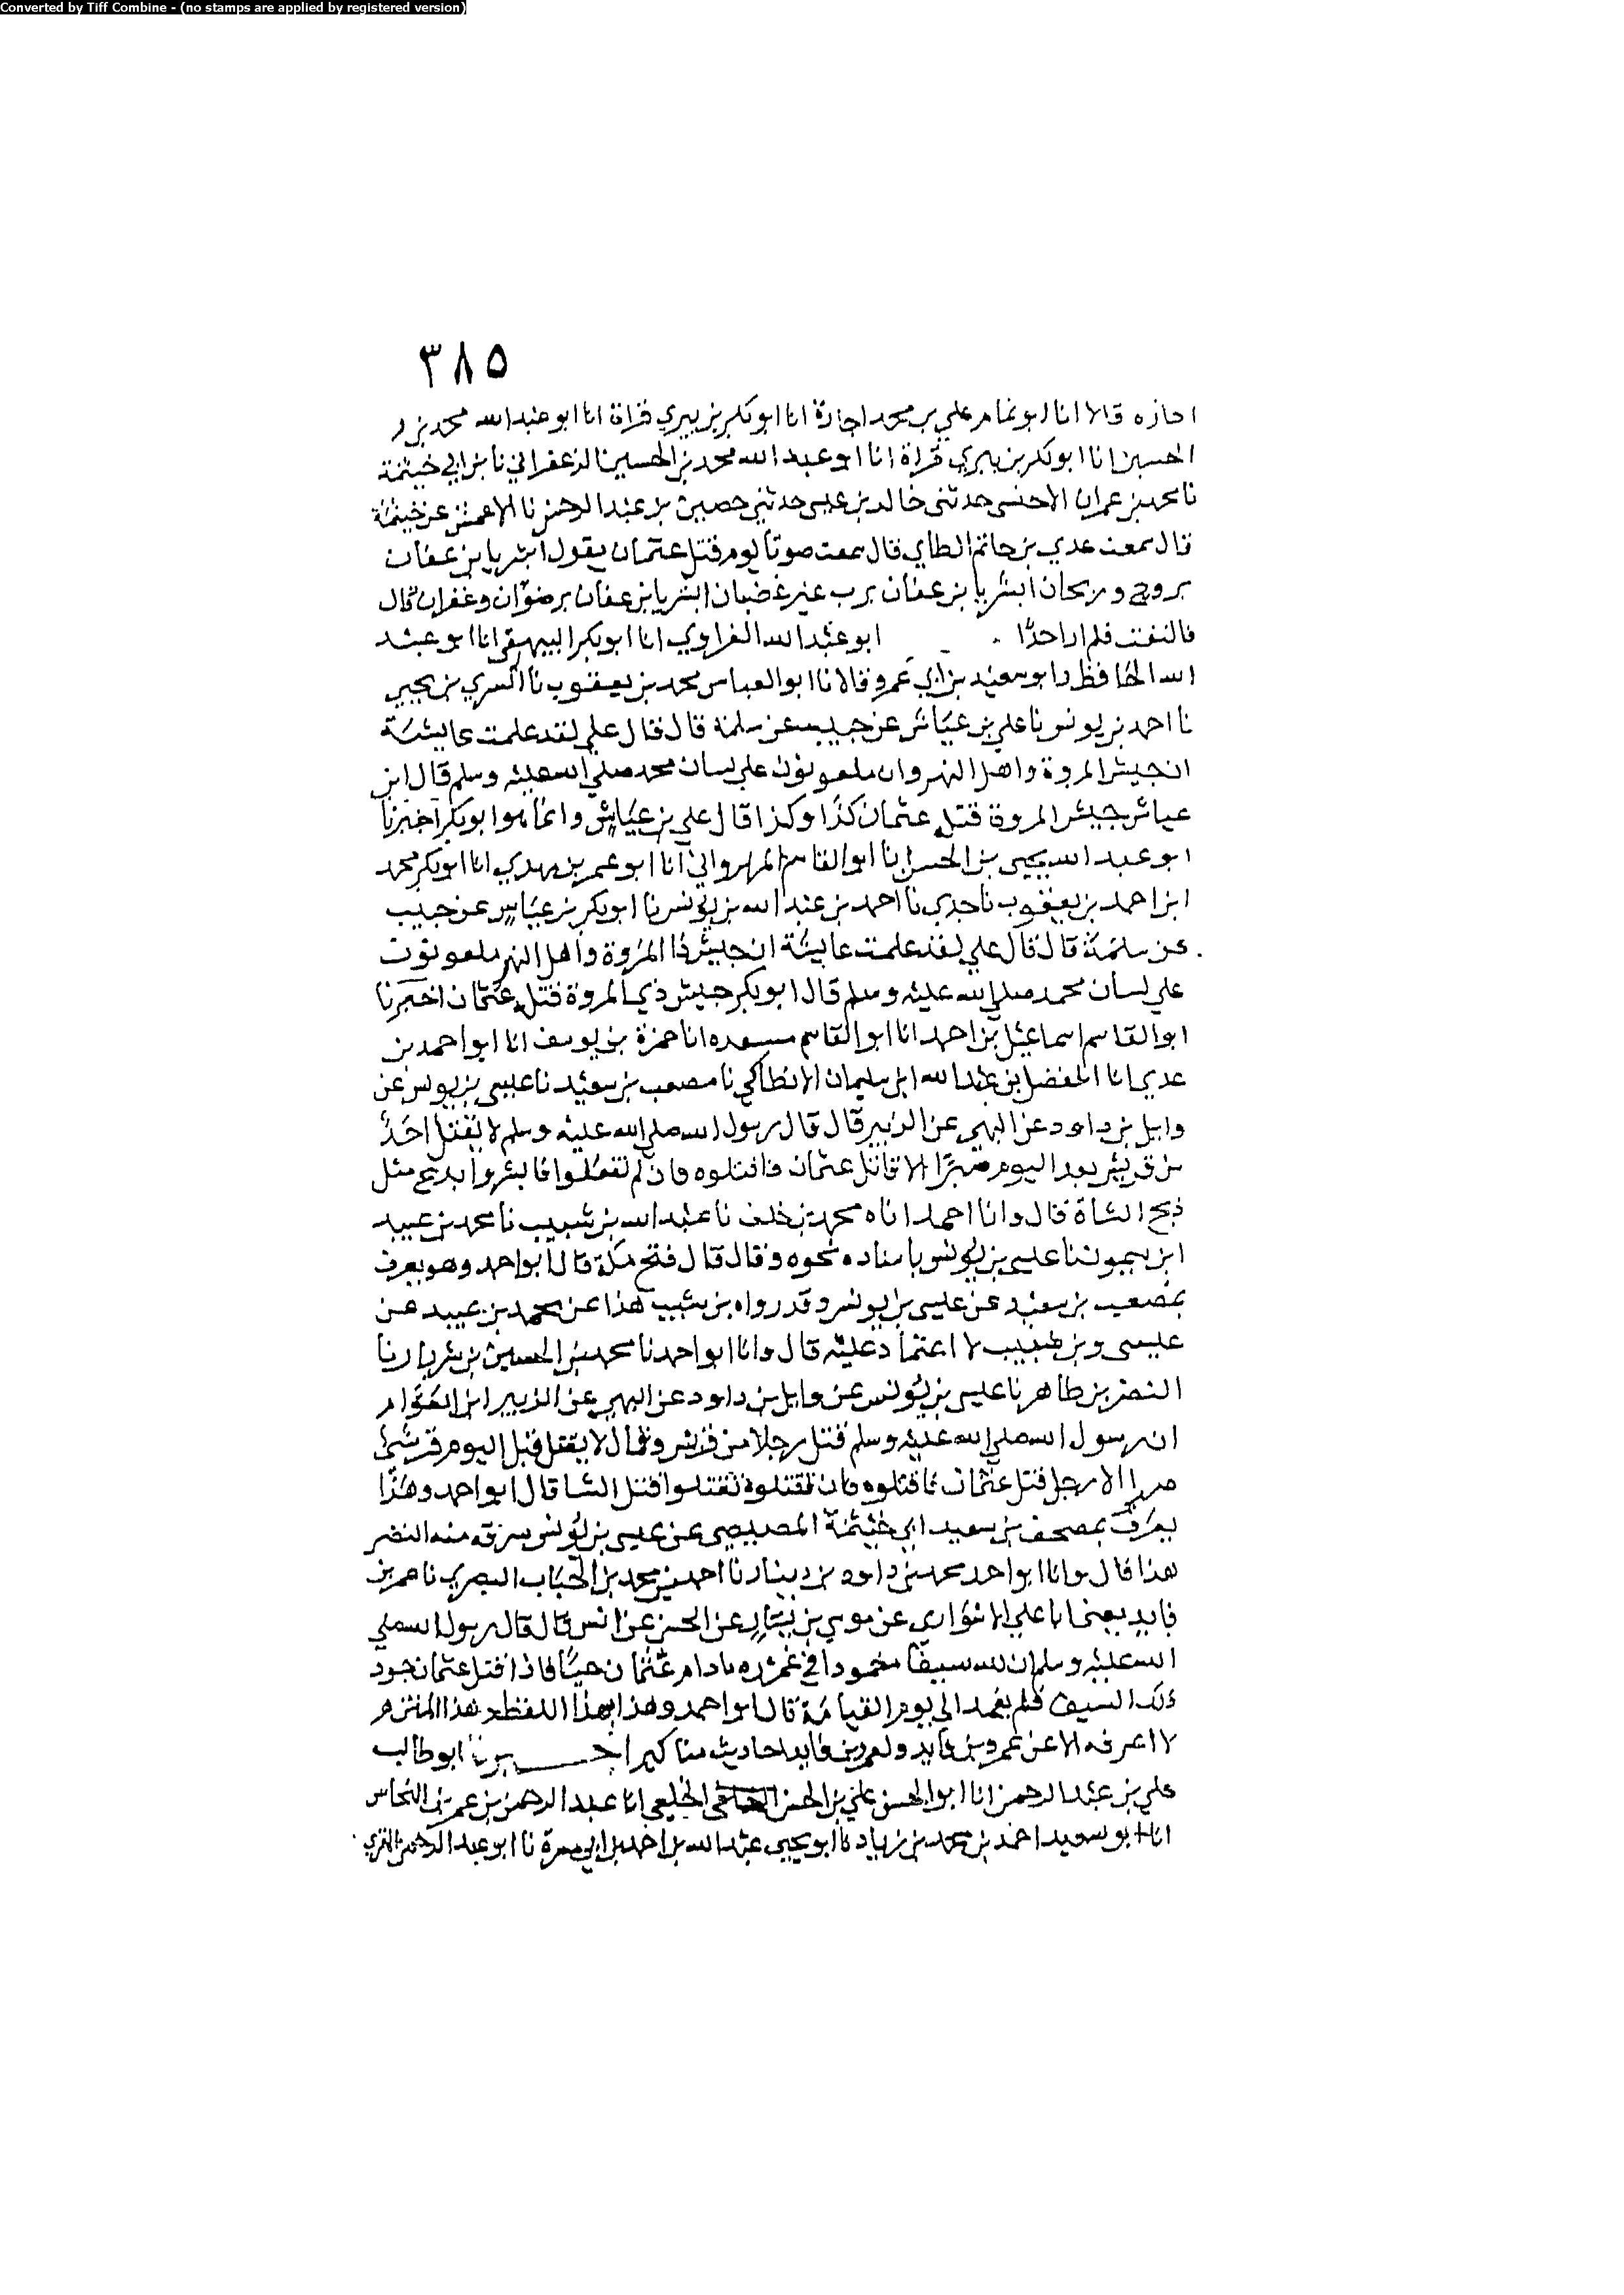 Converted by Tiff Combine - (no stamps are applied by registered version)
٣٨٥
اجازه قالا انا ابو تمام علي بن محمد اجازة انا ابو بكر بن بيري قراة انا ابو عبد الله محمد بن
الحسين انا ابو بكر بن بيري قراة انا ابو عبد الله محمد بن الحسين الزعفراني نا بن ابي خيثمة
نا محمد بن عمران الاخنسي حدثني خالد بن عيسى حدثني حصين بن عبد الرحمن نا الاعمش عن خيثمة
قال سمعت عدي بن حاتم الطاي قال سمعت صوتا يوم قتل عثمان يقول ابشر يا بن عفان
بروح وريحان ابشر يا بن عفان برب غير غضبان ابشر يا بن عفان برضوان وغفران قال
فالتفت فلم ار احدا ابو عبد الله الفراوي انا ابو بكر البيهقي انا ابو عبد
الله الحافظ وابو سعيد بن ابي عمرو قالا نا ابو العباس محمد بن يعقوب نا السري بن يحيى
نا احمد بن يونس نا علي بن عياش عن حبيب عن سلمة قال قال علي لقد علمت عايشة
ان جيش المروة واهل النهروان ملعونون على لسان محمد صلى الله عليه وسلم قال ابن
عياش جيش المروة قتلة عثمان كذا وكذا قال علي بن عياش وانما هو ابو بكر اخبرنا
ابو عبد الله يحيى بن الحسن انا ابو القاسم المهرواني انا ابو عمر بن مهدي انا ابو بكر محمد
ابن احمد بن يعقوب نا جدي نا احمد بن عبد الله بن يونس نا ابو بكر بن عياش عن حبيب
عن سلمة قال قال علي لقد علمت عايشة ان جيش ذا المروة واهل النهر ملعونون
على لسان محمد صلى الله عليه وسلم قال ابو بكر جيش ذي المروة قتلة عثمان اخبرنا
ابو القاسم اسماعيل بن احمد انا ابو القاسم مسعده انا حمزة بن يوسف انا ابو احمد بن
عدي انا الفضل بن عبد الله ابن سليمان الانطاكي نا مصعب بن سعيد نا عيسى بن يونس عن
وايل بن داود عن البهي عن الزبير قال قال رسول الله صلى الله عليه وسلم لا يقتل احد
من قريش بعد اليوم صبرا الا قاتل عثمان فاقتلوه فان لم تفعلوا فابشروا بذبح مثل
ذبح الشاة قال وانا احمد اناه محمد بن خلف نا عبد الله بن شبيب نا محمد بن عبيد
ابن ميمون نا عيسى بن يونس باسناده نحوه وقال قال فتح مكة قال ابو احمد وهو يعرف
بمصعب بن سعيد عن عيسى بن يونس وقد رواه بن شبيب هذا عن محمد بن عبيد عن
عيسى وبن شبيب لا اعتماد عليه قال وانا ابو احمد نا محمد بن الحسين بن شهريار نا
النضر بن طاهر نا عيسى بن يونس عن وايل بن داود عن البهي عن الزبير ابن العوام
ان رسول الله صلى الله عليه وسلم قتل رجلا من قريش وقال لا يقتل قبل اليوم قرشي
صبرا الا رجل قتل عثمان فاقتلوه فان تقتلوة تقتلوا قتل الشا قال ابو احمد وهذا
يعرف بمصحف بن سعيد ابي خيثمة المصيصي عن عيسى بن يونس سرقه منه النضر
هذا قال وانا ابو احمد محمد بن داود بن دينار نا احمد بن محمد بن الحباب البصري نا عمر بن
فايد يعني ابا علي الاسواري عن موسى بن يسار عن الحسن عن انس قال قال رسول الله صلى
الله عليه وسلم ان لله سيفا مغمودا في غمده مادام عثمان حيا فاذا قتل عثمان جرد
ذلك السيف فلم يغمد الى يوم القيامة قال ابو احمد وهذا بهذا اللفظ
لا اعرفه الا عن عمرو بن فايد ولعمرو بن فايد احاديث مناكير اخبرنا ابو طالب
علي بن عبد الرحمن انا ابو الحسن علي بن الحسن الخلعي انا عبد الرحمن بن عمر بن النحاس
انا ابو سعيد احمد بن محمد بن زياد نا ابو يحيى عبد الله بن احمد بن ابي مسرة نا ابو عبد الرحمن المقري